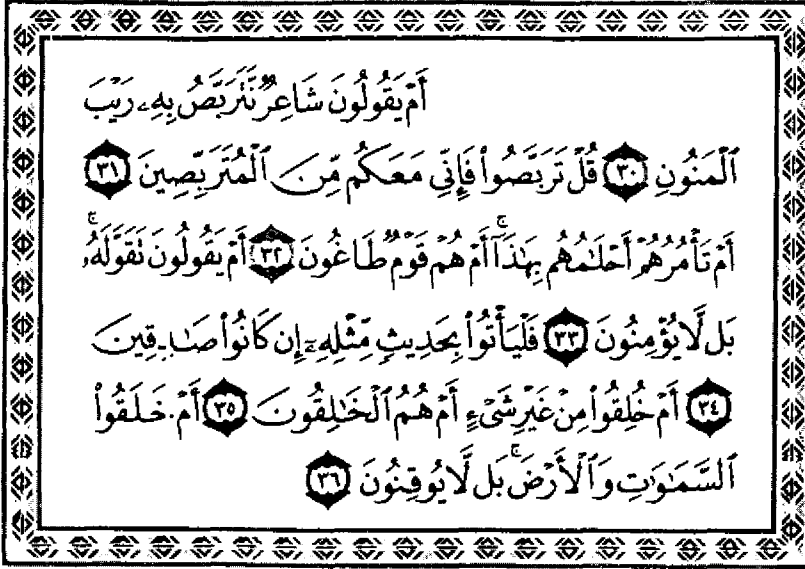 أَمْ يَقُولُونَ شَاعِرٌ نَّتَرَبَّصُ بِهِۦ رَيْبَ
ٱلْمَنُونِ ٣٠ قُلْ تَرَبَّصُوا۟ فَإِنِّى مَعَكُم مِّنَ ٱلْمُتَرَبِّصِينَ ٣١
أَمْ تَأْمُرُهُمْ أَحْلَـٰمُهُم بِهَـٰذَآ ۚ أَمْ هُمْ قَوْمٌ طَاغُونَ ٣٢ أَمْ يَقُولُونَ تَقَوَّلَهُۥ ۚ
بَل لَّا يُؤْمِنُونَ ٣٣ فَلْيَأْتُوا۟ بِحَدِيثٍ مِّثْلِهِۦٓ إِن كَانُوا۟ صَـٰدِقِينَ
٣٤ أَمْ خُلِقُوا۟ مِنْ غَيْرِ شَىْءٍ أَمْ هُمُ ٱلْخَـٰلِقُونَ ٣٥ أَمْ خَلَقُوا۟
ٱلسَّمَـٰوَٰتِ وَٱلْأَرْضَ ۚ بَل لَّا يُوقِنُونَ ٣٦